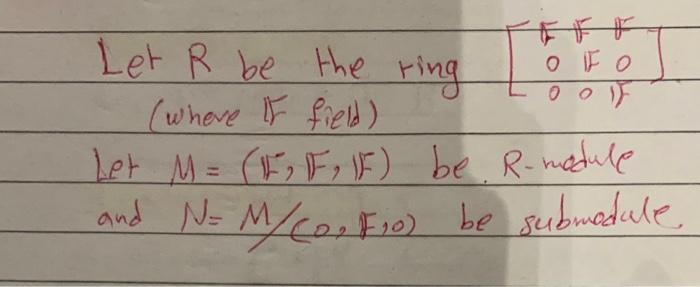 Let R be the ring [ 𝔽 𝔽 𝔽
0 𝔽 0
0 0 𝔽 ]
(where 𝔽 field)
Let M = (𝔽, 𝔽, 𝔽) be R-module
and N= M/(0, 𝔽, 0) be submodule.